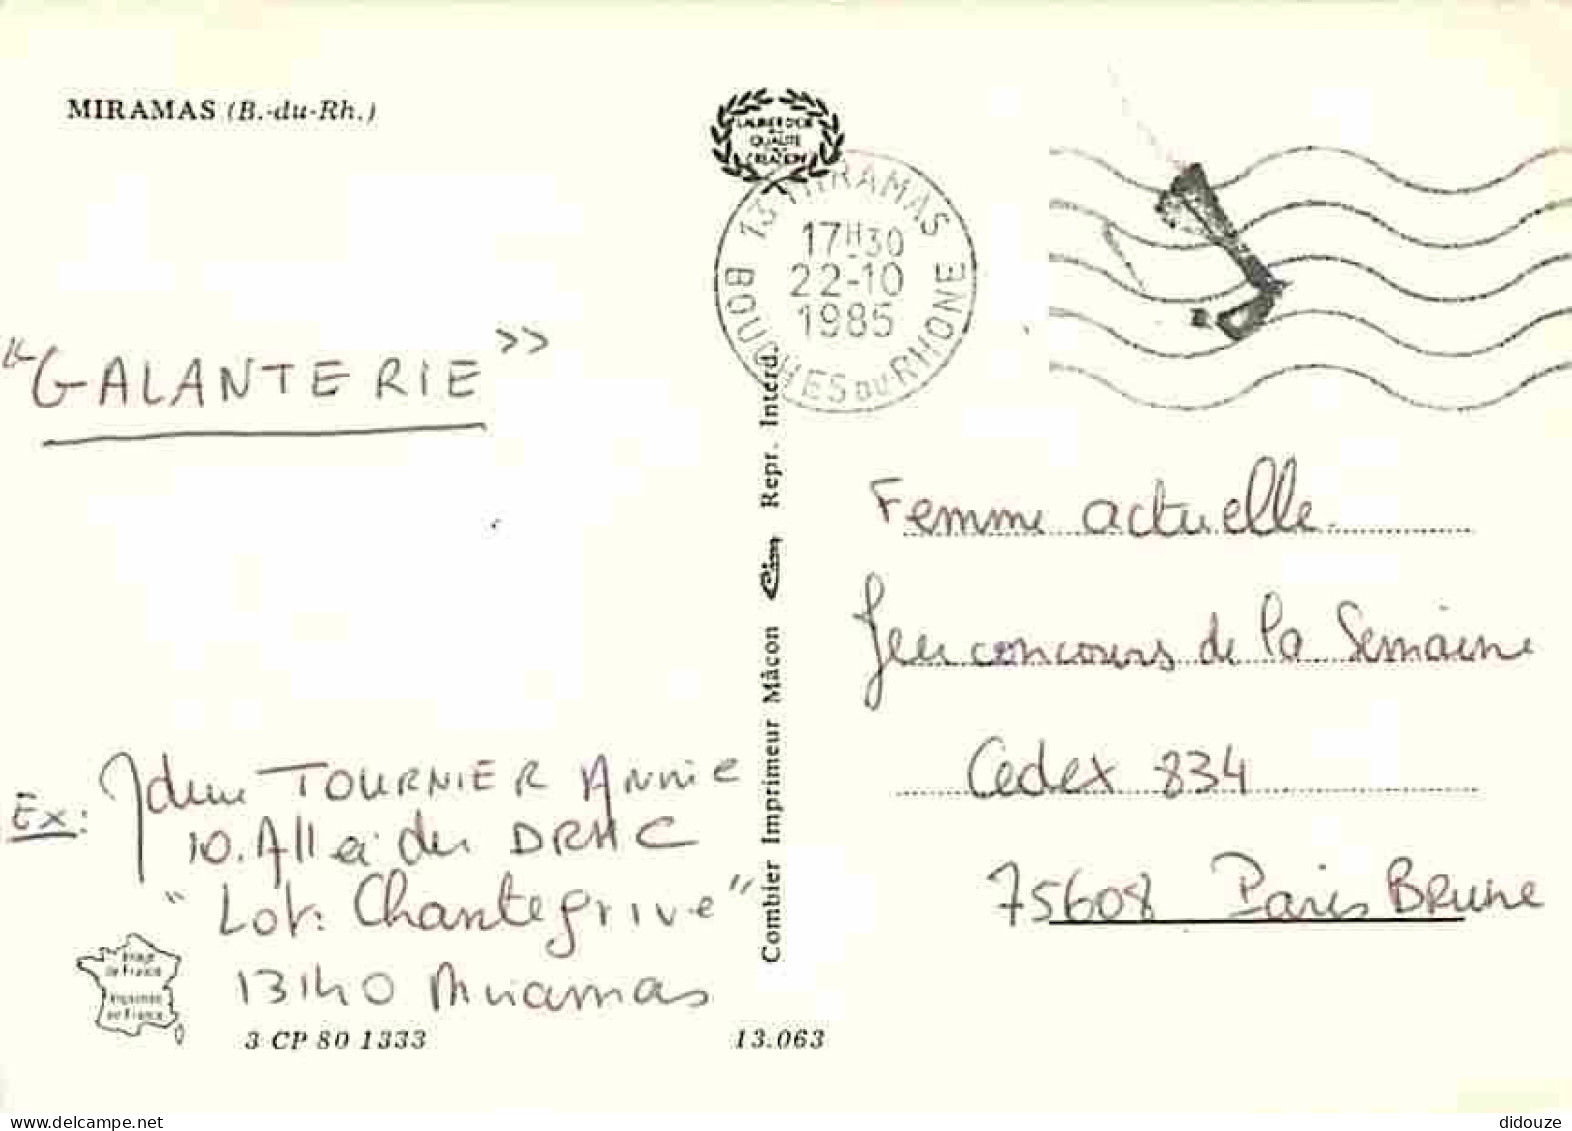 MIRAMAS (B.-du-Rh.)
LAURIER D'OR
QUALITÉ
CRÉATION
13 MIRAMAS
17H30
22-10
1985
BOUCHES DU RHONE
“GALANTERIE”
Ex:
TOURNIER Annie
10. Allée du DRHC
“Lot: Chantegrive”
13140 Miramas
Image
de France
Imprimée
en France
3 CP 80 1333
13.063
Combier Imprimeur Mâcon Cim Repr. Interd.
Femme actuelle
Jeu concours de la Semaine
Cedex 834
75608 Paris Brune
www.delcampe.net
didouze